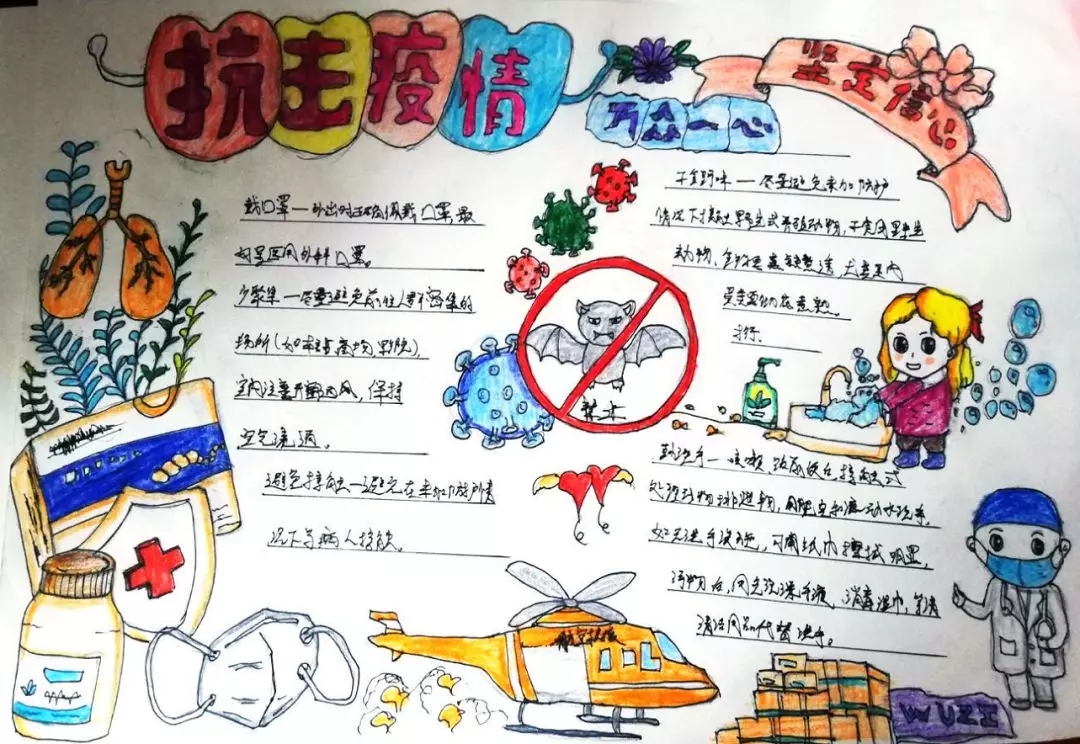 抗击疫情
万众一心
坚定信心
戴口罩—外出时正确佩戴口罩最
好是医用外科口罩。
少聚集—尽量避免前往人群密集的
场所(如车站、商场、影院)
室内注意开窗通风,保持
空气流通。
避免接触—避免在未加防护情
况下与病人接触。
禁止
不食野味—尽量避免未加防护
情况下接触野生或养殖动物,不食用野生
动物,
勤洗手—咳嗽
处理动物排泄物,用肥皂和流动水洗手,
如无洗手设施,可用纸巾擦拭明显
污物后,用免洗洗手液、消毒湿巾,等清
洁用品代替洗手。
WUZI